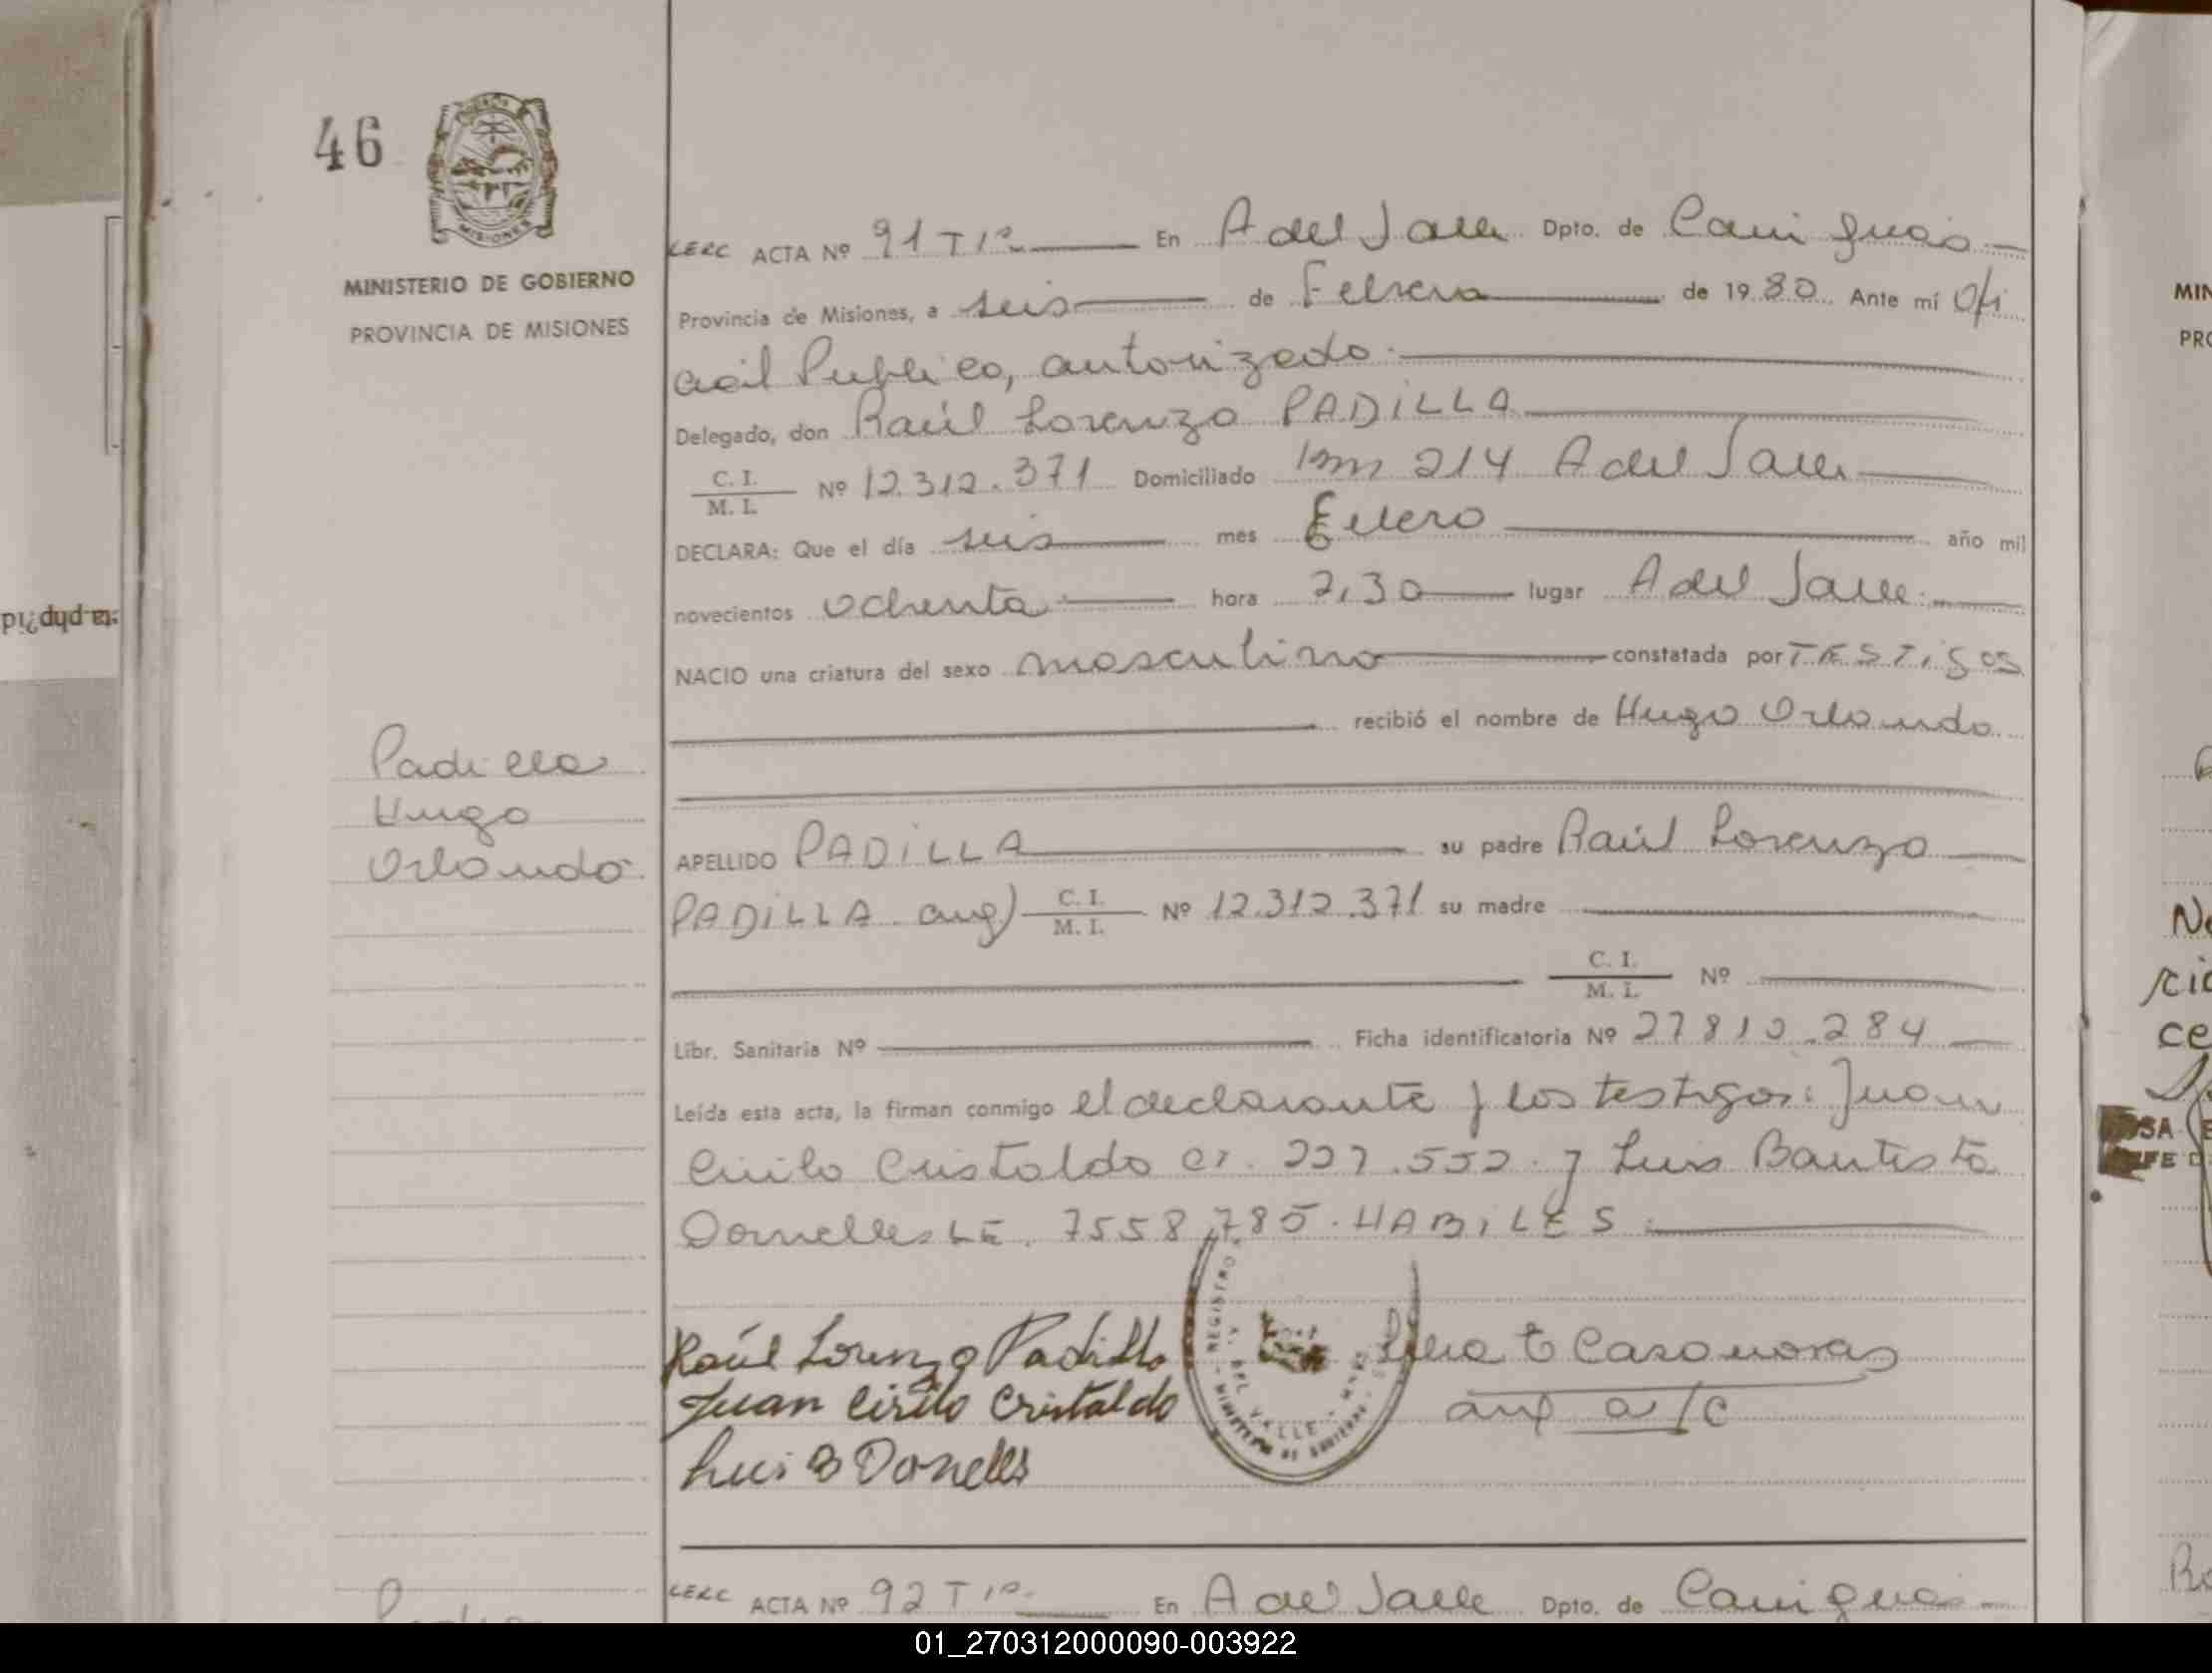 46
MINISTERIO DE GOBIERNO
PROVINCIA DE MISIONES
LERC ACTA Nº 91 T 1º En A del Valle Dpto. de Cainguás
Provincia de Misiones, a seis de Febrero de 1980. Ante mí Ofi
cial Publico, autorizado.
Delegado, don Raúl Lorenzo PADILLA
C. I.
M. I. Nº 12.312.371 Domiciliado Km 214 A del Valle
DECLARA: Que el día seis mes Enero año mil
novecientos ochenta hora 2,30 lugar A del Valle.
NACIO una criatura del sexo masculino constatada por TESTigos
recibió el nombre de Hugo Orlando
Padilla
Hugo
Orlando.
APELLIDO PADILLA su padre Raúl Lorenzo
PADILLA arg) C. I.
M. I. Nº 12.312.371 su madre
C. I.
M. I. Nº
Libr. Sanitaria Nº Ficha identificatoria Nº 27810.284
Leída esta acta, la firman conmigo el declarante y los testigos: Juan
Cirilo Cristaldo CI. 227.552. y Luis Bautista
Dornelles LE. 7558.785. HABILES.
Raúl Lorenzo Padilla
Juan Cirilo Cristaldo
Luis B Donelles
REGISTRO
A. DEL VALLE
MINISTERIO DE GOBIERNO
Casanovas
aux a/c
LERC ACTA Nº 92 T 1º En A del Valle Dpto. de Cainguás
01_270312000090-003922